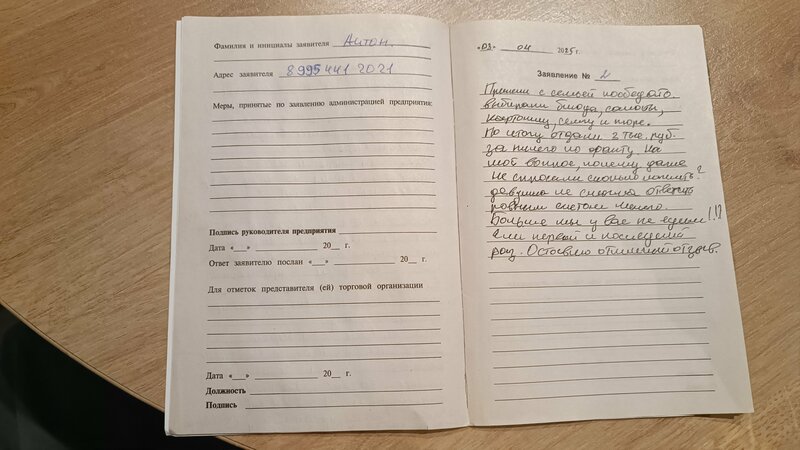 Фамилия и инициалы заявителя Антон.
Адрес заявителя 8 995 441 2021
Меры, принятые по заявлению администрацией предприятия:
Подпись руководителя предприятия
Дата «___» 20__ г.
Ответ заявителю послан «___» 20__ г.
Для отметок представителя (ей) торговой организации
Дата «___» 20__ г.
Должность
Подпись
«03» 04 2025 г.
Заявление № 2
Пришли с семьей пообедать.
выбирали блюда, салаты,
картошку, семгу и пюре.
По итогу отдали 2 тыс. руб.
за ничего по факту. На
мой вопрос, почему даже
не спросили сколько ложить?
девушка не смогла ответить
ровным счетом ничего.
Больше мы у вас не едим!!!
Ели первый и последний
раз. Оставлю отзыв.